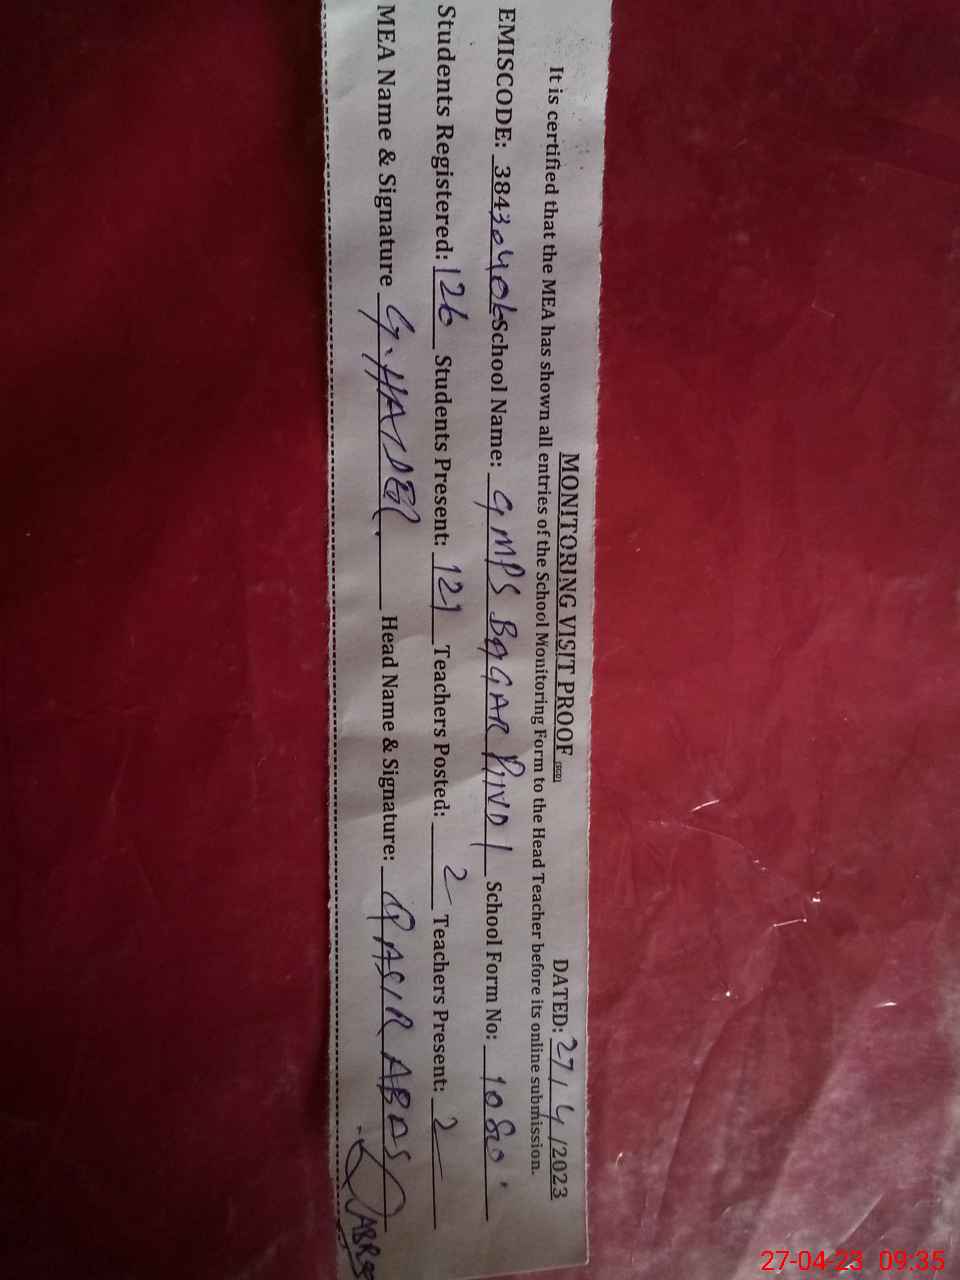 MONITORING VISIT PROOF DATED: 27/4/2023
It is certified that the MEA has shown all entries of the School Monitoring Form to the Head Teacher before its online submission.
EMISCODE: 38430406 School Name: GMPS BAGAR PIND 1 School Form No: 1080
Students Registered: 126 Students Present: 121 Teachers Posted: 2 Teachers Present: 2
MEA Name & Signature G. HAIDER. Head Name & Signature: QASIR ABAS
27-04-23 09:35